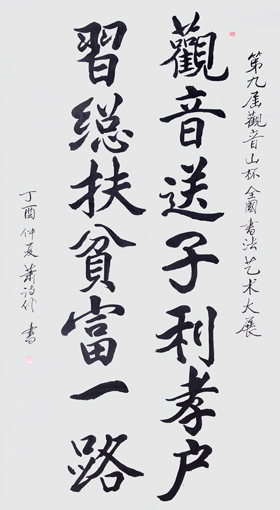 第九届觀音山杯全國书法艺术大展
觀音送子利孝户
習總扶貧富一路
丁酉仲夏蕭诗作書